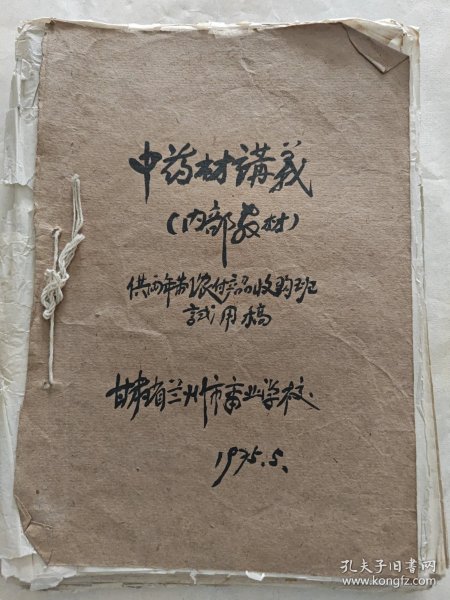 中药材講義
(内部教材)
供两年制农付产品收购班
試用稿
甘肃省兰州市商业学校.
1975.5.
孔夫子旧书网
www.kongfz.com